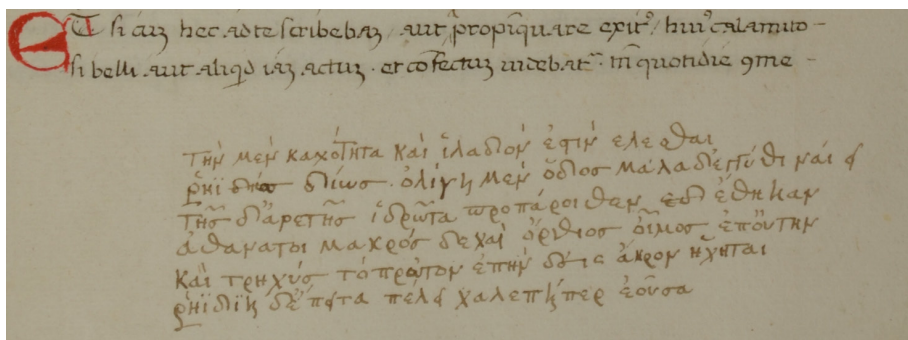 ET si cuȝ hec ad te scribebaȝ, aut ꝓpinquare exitꝰ huiꝰ calamito-
si belli aut aliqd iaȝ actuȝ. et cōfectuȝ uidebatr. tn̄ quotidie ꝯme-
τὴν μὲν καχότητα καὶ ἱλαδιόν ἐϛιν ελεσθαι
ῥηϊ διώς. ὀλίγη μὲν ὅδιος μαλαδἐγγύθι ναίει
τῆς δἀρετῆς ἱδρῶτα προπάροιθεν ἔθηκαν
ἀθανατοι μακρός δεχαὶ ὄρθιος οἷμος ἐπὄυτην
καὶ τρηχύς τόπρῶτον ἐπὴν ἄκρον ἥχηται
ῥηϊδίη δἔπειτα πέλει χαλεπήπερ ἐοῦσα